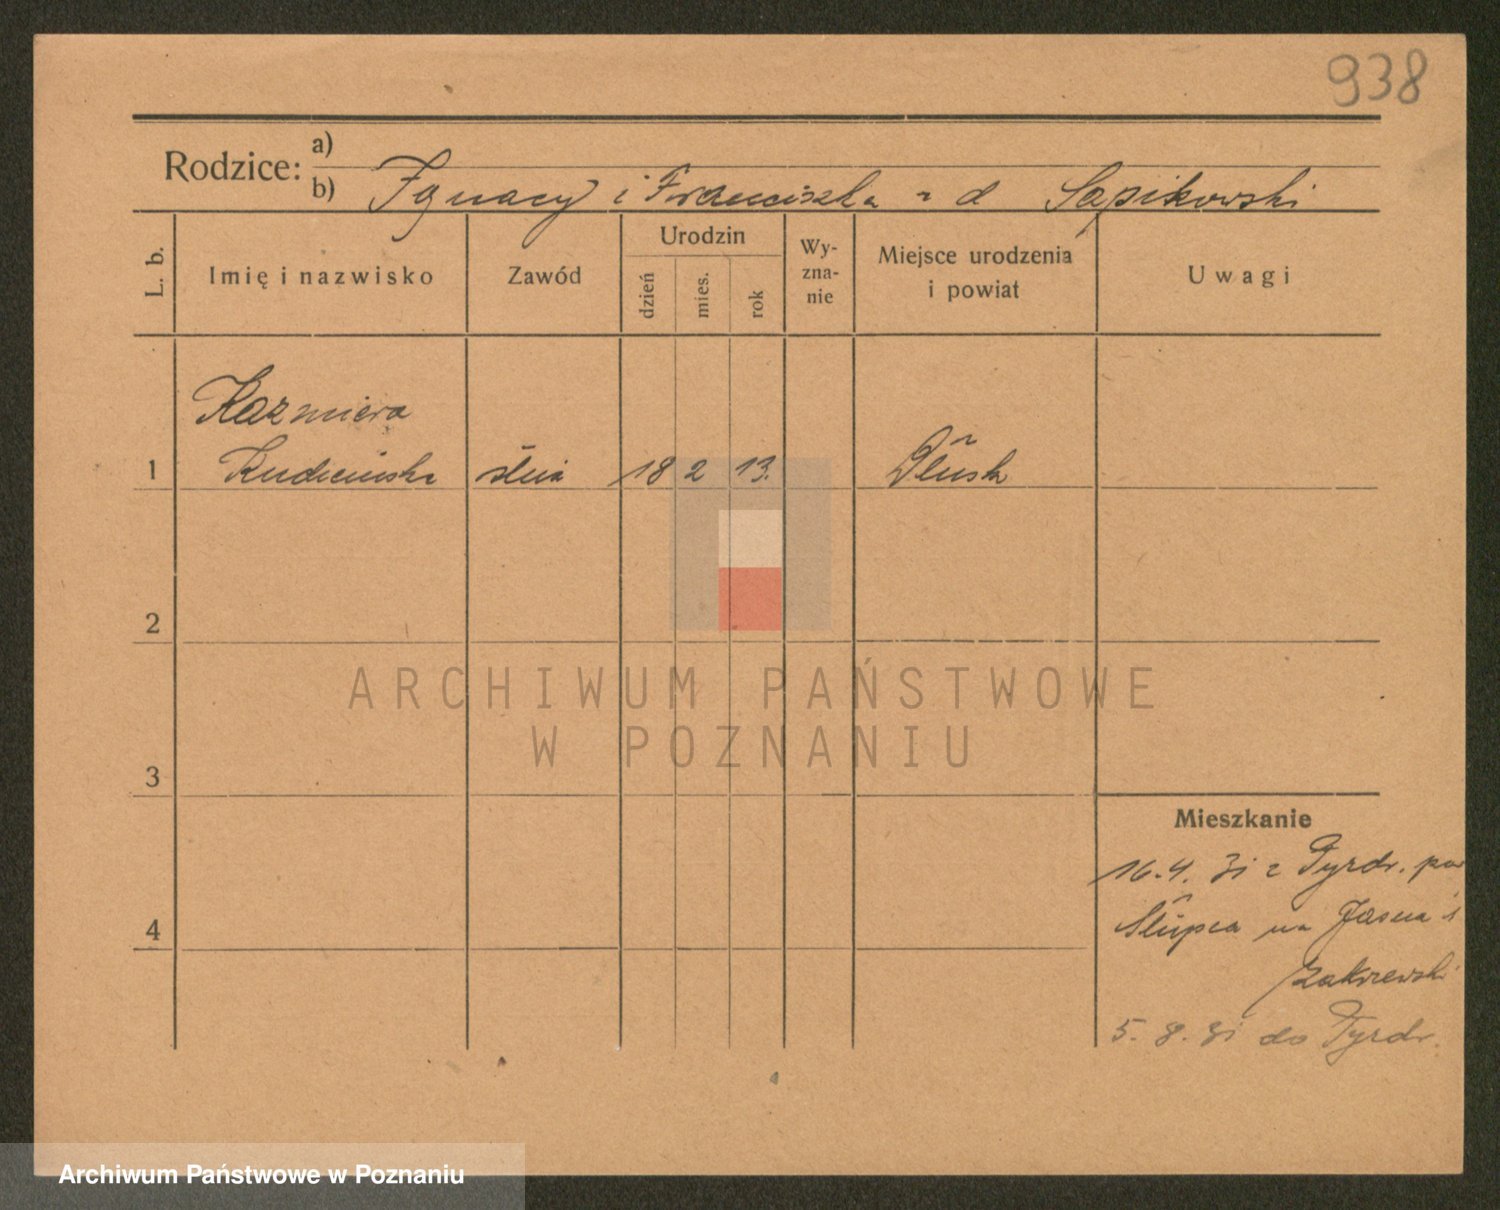 938
Rodzice: a)
b) Ignacy i Franciszka z d Sapikowski
L. b.
Imię i nazwisko
Zawód
Urodzin
dzień
mies.
rok
Wy-
zna-
nie
Miejsce urodzenia
i powiat
Uwagi
Kazmiera
1 służ 18 2 13. Dłusk
2
ARCHIWUM PAŃSTWOWE
W POZNANIU
3
Mieszkanie
16.4. 31 z Pyzdr. pow
Słupca na Jasna 1
Zakrzewski
4
5. 8. 31 do Pyzdr.
Archiwum Państwowe w Poznaniu